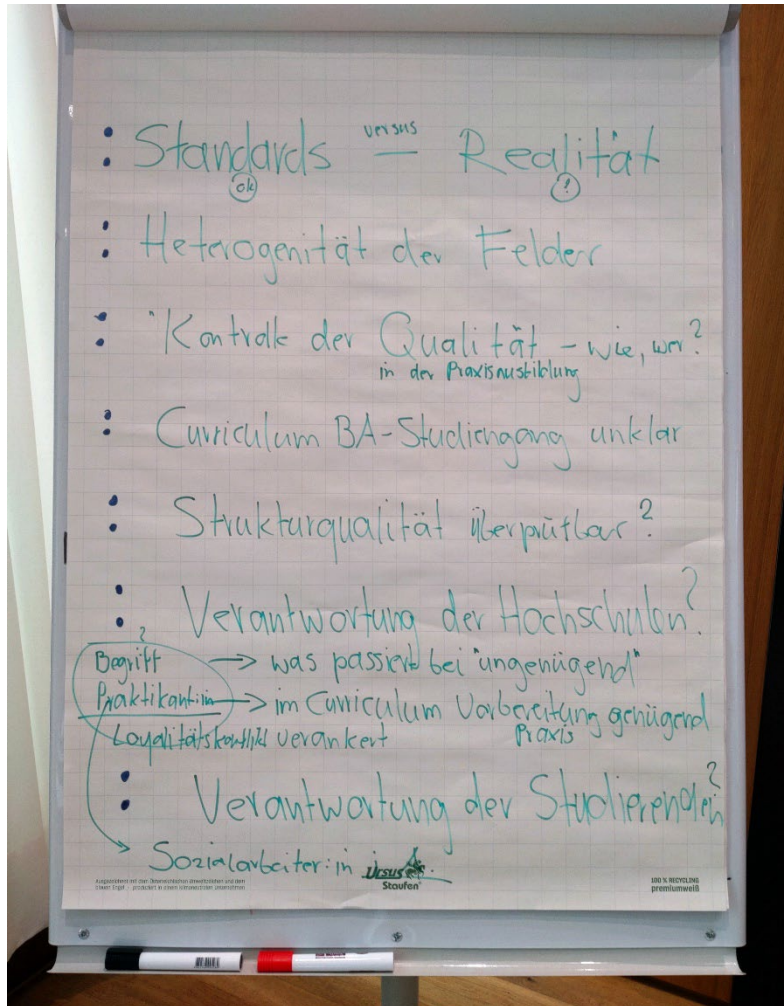 : Standards versus — Realität
ok !
: Heterogenität der Felder
: "Kontrolle der Qualität – wie, wer?
in der Praxisausbildung
: Curriculum BA-Studiengang unklar
: Strukturqualität überprüfbar?
: Verantwortung der Hochschulen?
?
Begriff → was passiert bei "ungenügend"
Praktikant:in → im Curriculum Vorbereitung genügend
Loyalitätskonflikt verankert Praxis
: Verantwortung der Studierenden?
→ Sozialarbeiter:in i.
Ursus
Staufen
100 % RECYCLING
premiumweiß